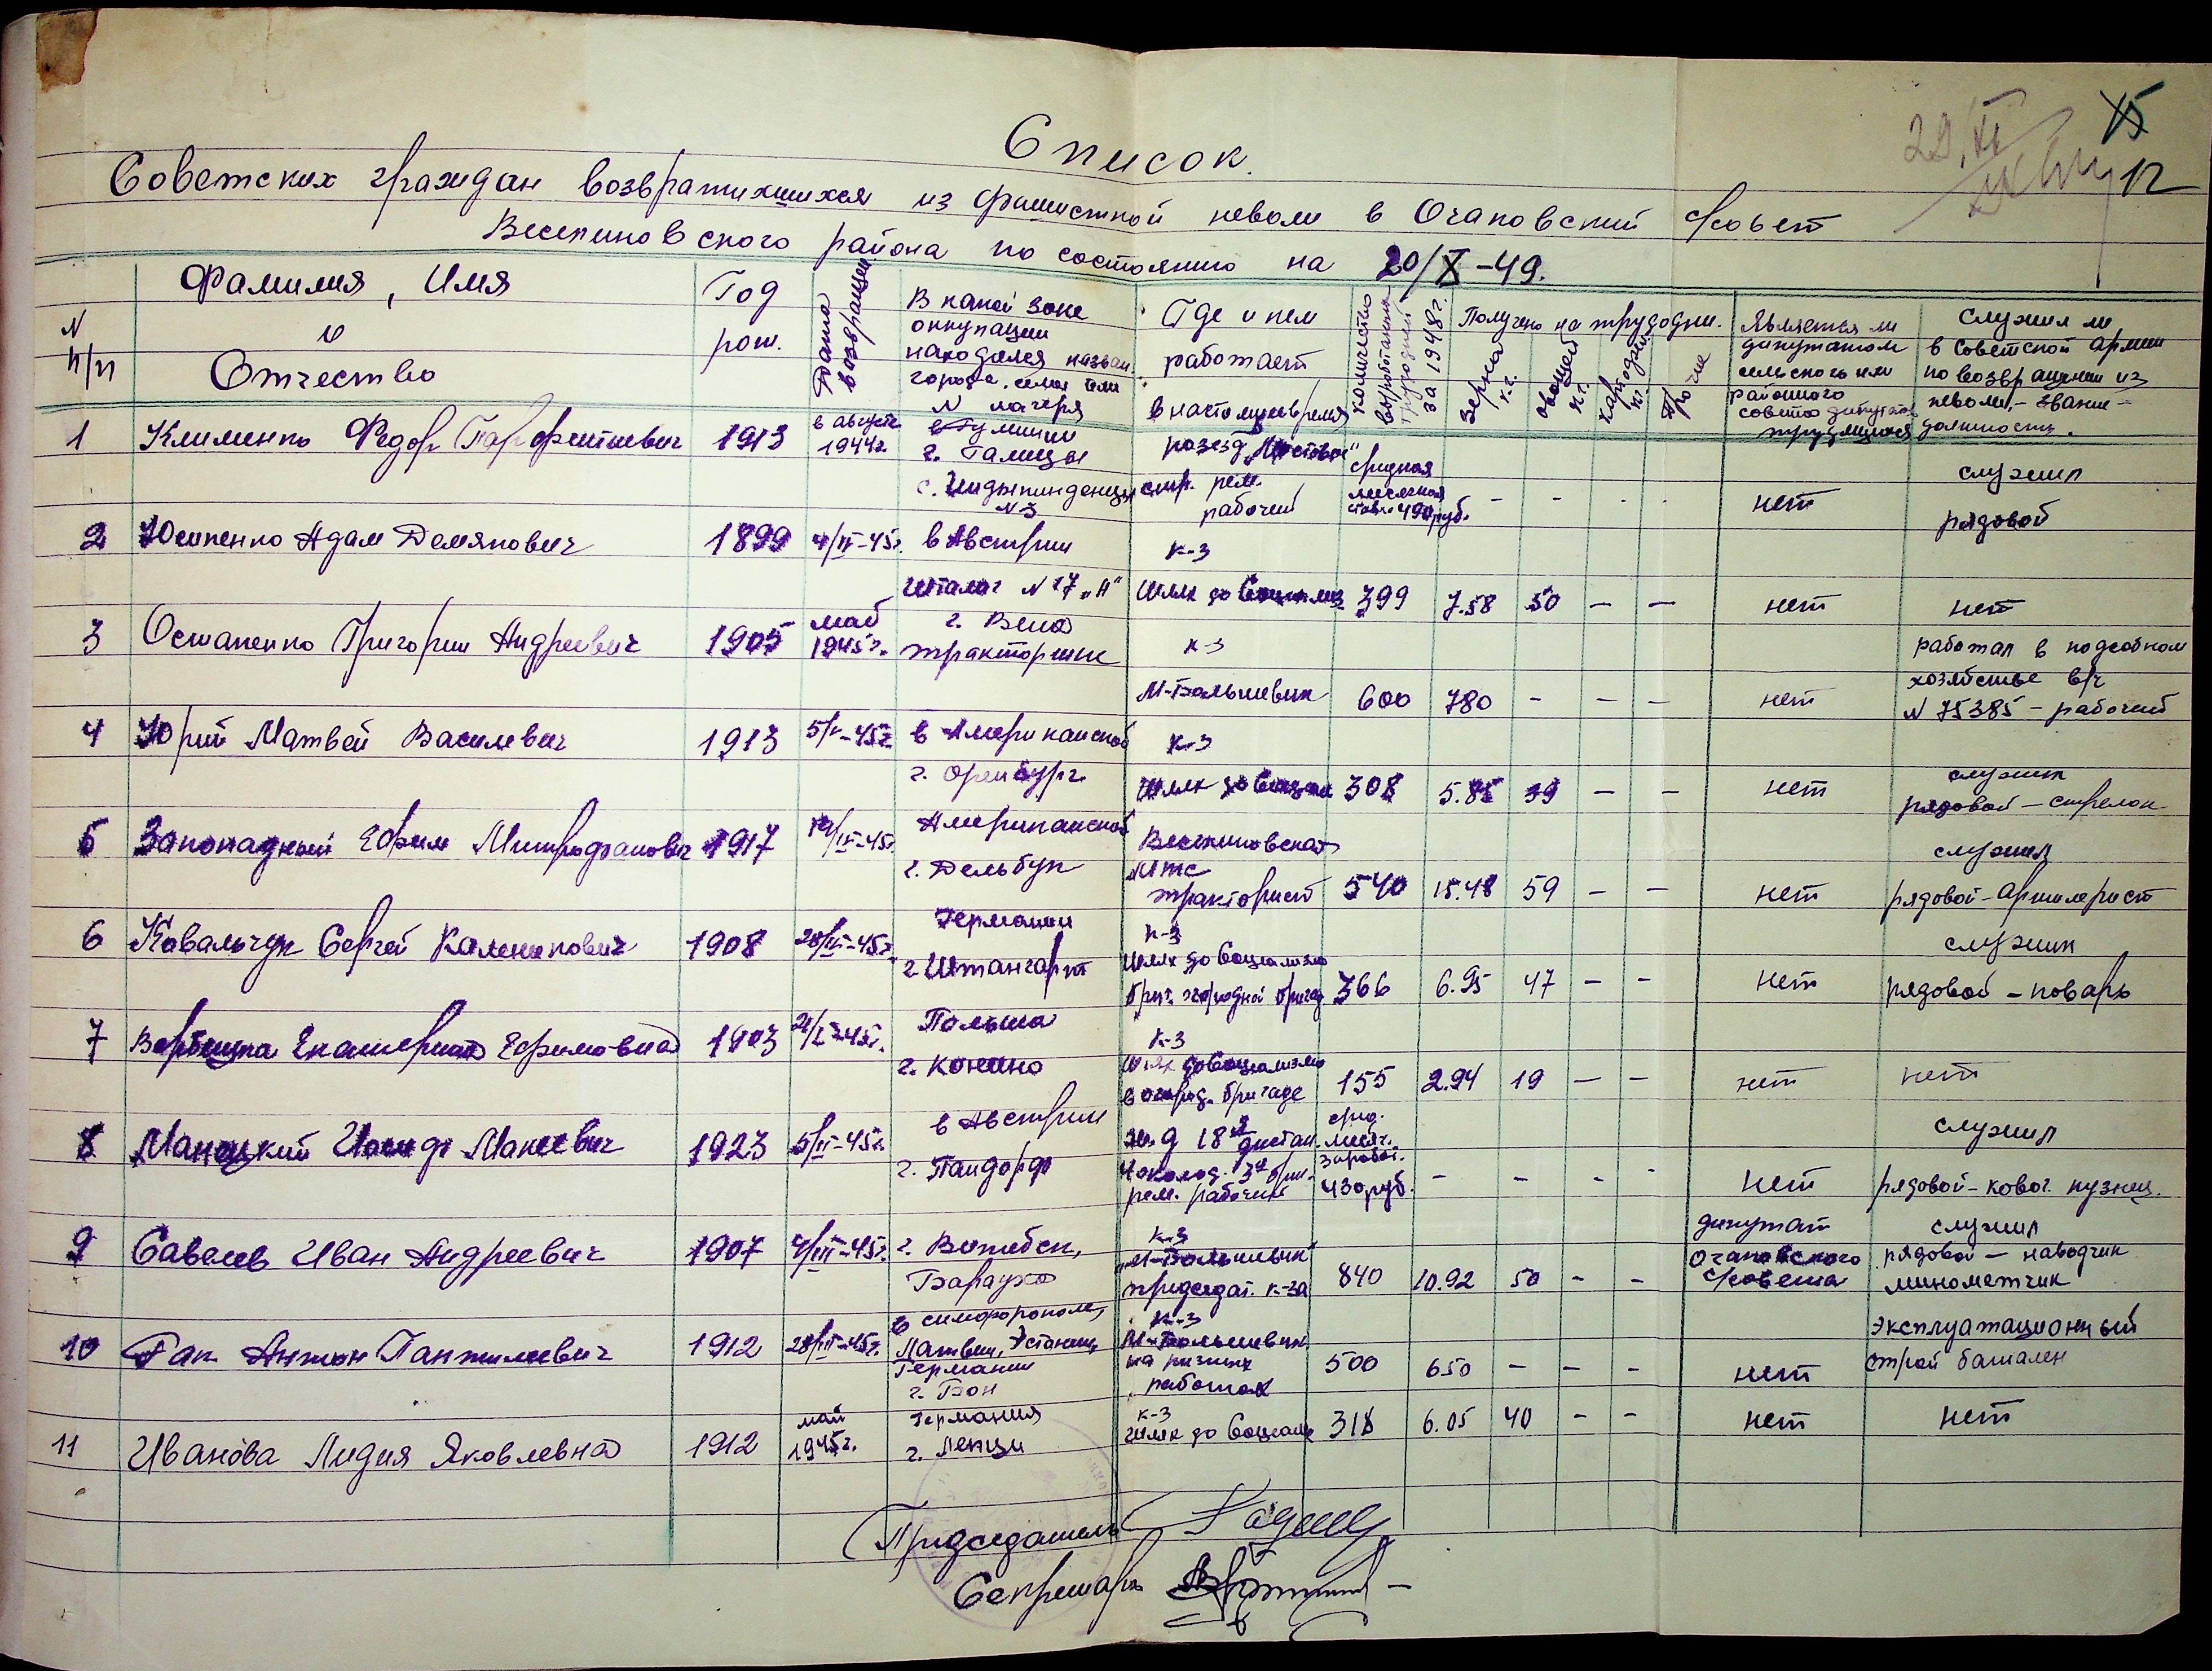 29.XI
15
12
Список.
Советских граждан возвратихшихся из фашисткой неволи в Очаповский с/совет
Веселиновского района по состоянию на 20/X-49.
N п/п
Фамилия, Имя и Отчество
Год рож.
Дата возвращен
В какой зоне оккупации находился назван. города, села или N лагеря
Где и кем работает в настоящее время
количество выработанных трудодней за 1948г.
Получено на трудодни.
зерна кг.
овощей кг.
картофель кг.
Прочие
Является ли депутатом сельского или районного совета депутатов трудящихся
Служил ли в Советской армии по возвращении из неволи, - звание - должность.
1 Клименко Федор Парфентиевич 1913 в августе 1944г. в Румынии г. Галицы с. N3 разезд „Мостовое" стр. рем. рабочий средная месячная ставка 490 руб. - - - - нет служил рядовой
2 Юсипенко Адам Демянович 1899 4/IV-45г. в Австрии шталаг N 17 „А" к-з Шлях до Социализ 399 7.58 50 — — нет нет
3 Остапенко Григории Андреевич 1905 май 1945г. г. Вена трактористк к-з М-Большевик 600 780 - - - нет работал в подсобном хозяйстве в/ч N 75385 - рабочий
4 Юрий Матвей Василевич 1913 5/V-45г. в Американской г. Оренбург. к-з Шлях до Социал 308 5.85 39 — — нет служил рядовой - стрелок
5 Запопадный Ефим Митрофанович 1917 Американской г. Дельбук Веселиновская МТС тракторист 540 15.48 59 — — нет служил рядовой - артилерист
6 Ковальчук Сергей Каленикович 1908 20/III-45г. Германии г. Штангарт к-з Шлях до Социализма бриг. огородней бригад 366 6.95 47 — — нет служил рядовой - поварь
7 Вербицка Екатерина Ефимовна 1903 Польша г. Конино к-з Шлях до Социализма в огород. бригаде 155 2.94 19 — — нет нет
8 Манецкий Иосиф Мансевич 1923 5/IV-45г. в Австрии г. Пандорф ж.д 18й дистан. околод. 3я бри. рем. рабочий сред. месяч. заработ. 430 руб. - - - - нет служил рядовой - ковоч. кузнец.
9 Савелев Иван Андреевич 1907 4/III-45г. г. Витебск, к-з „М-Большевик" председат. к-за 840 10.92 50 - - депутат Очаповского с/совета служил рядовой — наводчик минометчик
10 Рак Антон Пантилеевич 1912 28/III-45г. в симфорополе, Латвии, Эстонии, Германии г. Бон к-з М-Большевик на разных работах 500 650 — — — нет эксплуатационный строй батален
11 Иванова Лидия Яковлевна 1912 май 1945г. Германия г. Лепци к-з Шлях до Социализ 318 6.05 40 — — нет нет
Председатель
Секретарь